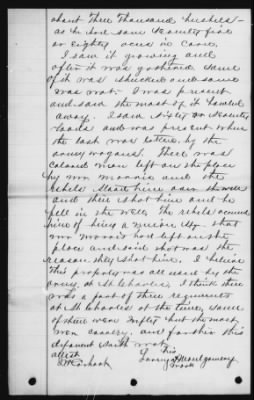 about Three Thousand bushels -
as he had some seventy five
or eighty acres in corn.
I saw it growing and
after it was gathered some
of it was shucked and some
was not - I was present
and saw the most of it hauled
away. I saw sixty or seventy
loads and was present when
the last was taken by the
army wagons. There was
colored man left on the place
by Mr Morris and the
rebels stood him over the well
and then shot him and he
fell in the well. The rebels accused
him of being a Union spy that
Mr Morris had left on the
place and said that was the
reason they shot him. I believe
this property was all used by the
army at St Charles. I think there
was a part of three regiments
at St Charles at the time, some
of them were Infty but the most
were cavalry, and further this
deponent saith not
attest
his
Montgomery
mark